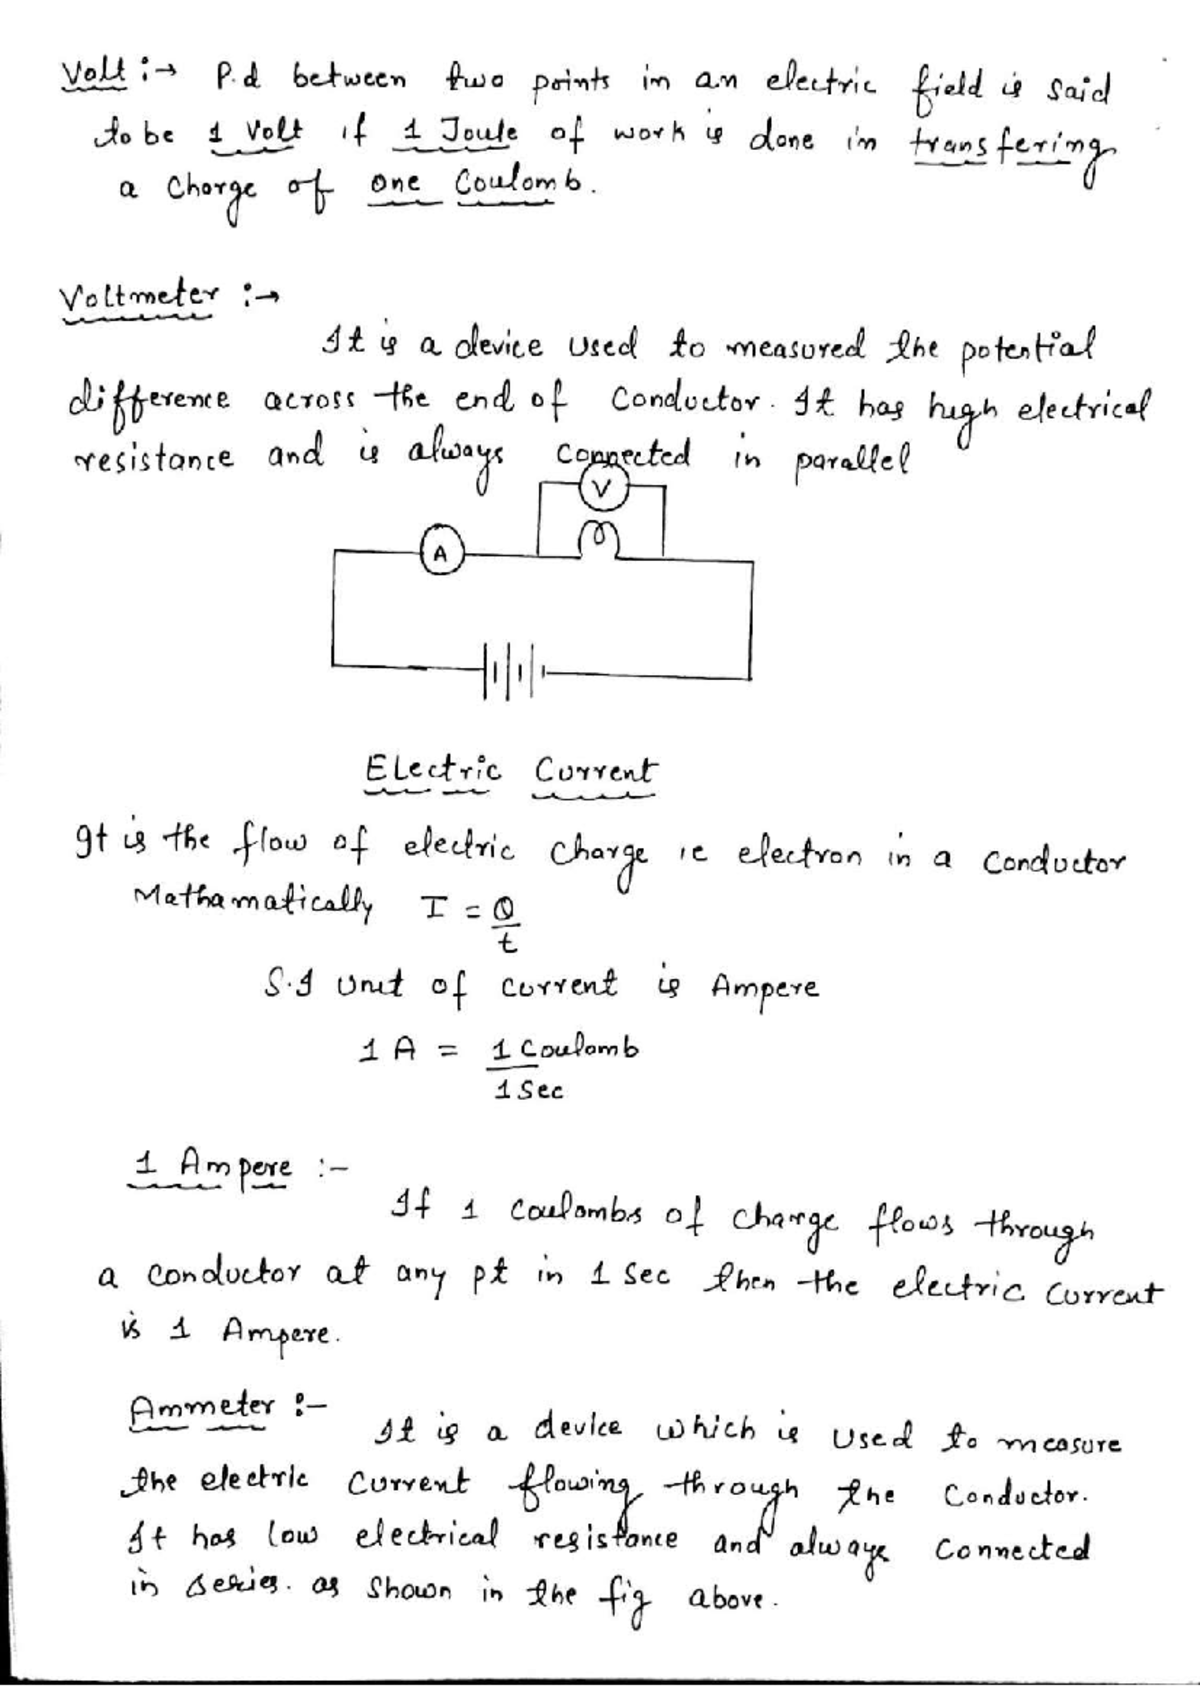 Volt :→ P.d between two points in an electric field is said
to be 1 Volt if 1 Joule of work is done in transfering
a Charge of one Coulomb.
Voltmeter :→
It is a device used to measured the potential
difference across the end of Conductor. It has high electrical
resistance and is always connected in parallel
V
A
Electric Current
It is the flow of electric charge ie electron in a conductor
Mathamatically I = Q
t
S.I unit of current is Ampere
1 A = 1 Coulomb
1 Sec
1 Ampere :-
If 1 Coulombs of charge flows through
a conductor at any pt in 1 sec then the electric current
is 1 Ampere.
Ammeter :-
It is a device which is used to measure
the electric current flowing through the Conductor.
It has low electrical resistance and always connected
in series. as shown in the fig above.